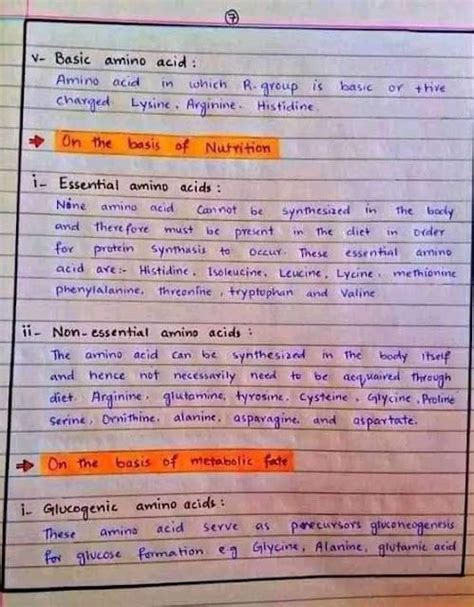 7
v- Basic amino acid :
Amino acid in which R-group is basic or +tive
charged Lysine, Arginine. Histidine.
→ On the basis of Nutrition
i- Essential amino acids :
Nine amino acid Cannot be synthesized in the body
and therefore must be present in the diet in order
for protein synthasis to occur. These essential amino
acid are:- Histidine, Isoleucine, Leucine, Lycine, methionine
phenylalanine, threonine, tryptophan and Valine.
ii- Non-essential amino acids :
The amino acid can be synthesized in the body itself
and hence not necessarily need to be acquaired through
diet. Arginine, glutamine, tyrosine. Cysteine, Glycine, Proline
serine, Ornithine. alanine, asparagine and aspartate.
→ On the basis of metabolic fate
i- Glucogenic amino acids :
These amino acid serve as perecursors gluconeogenesis
for glucose formation. e.g Glycine, Alanine, glutamic acid